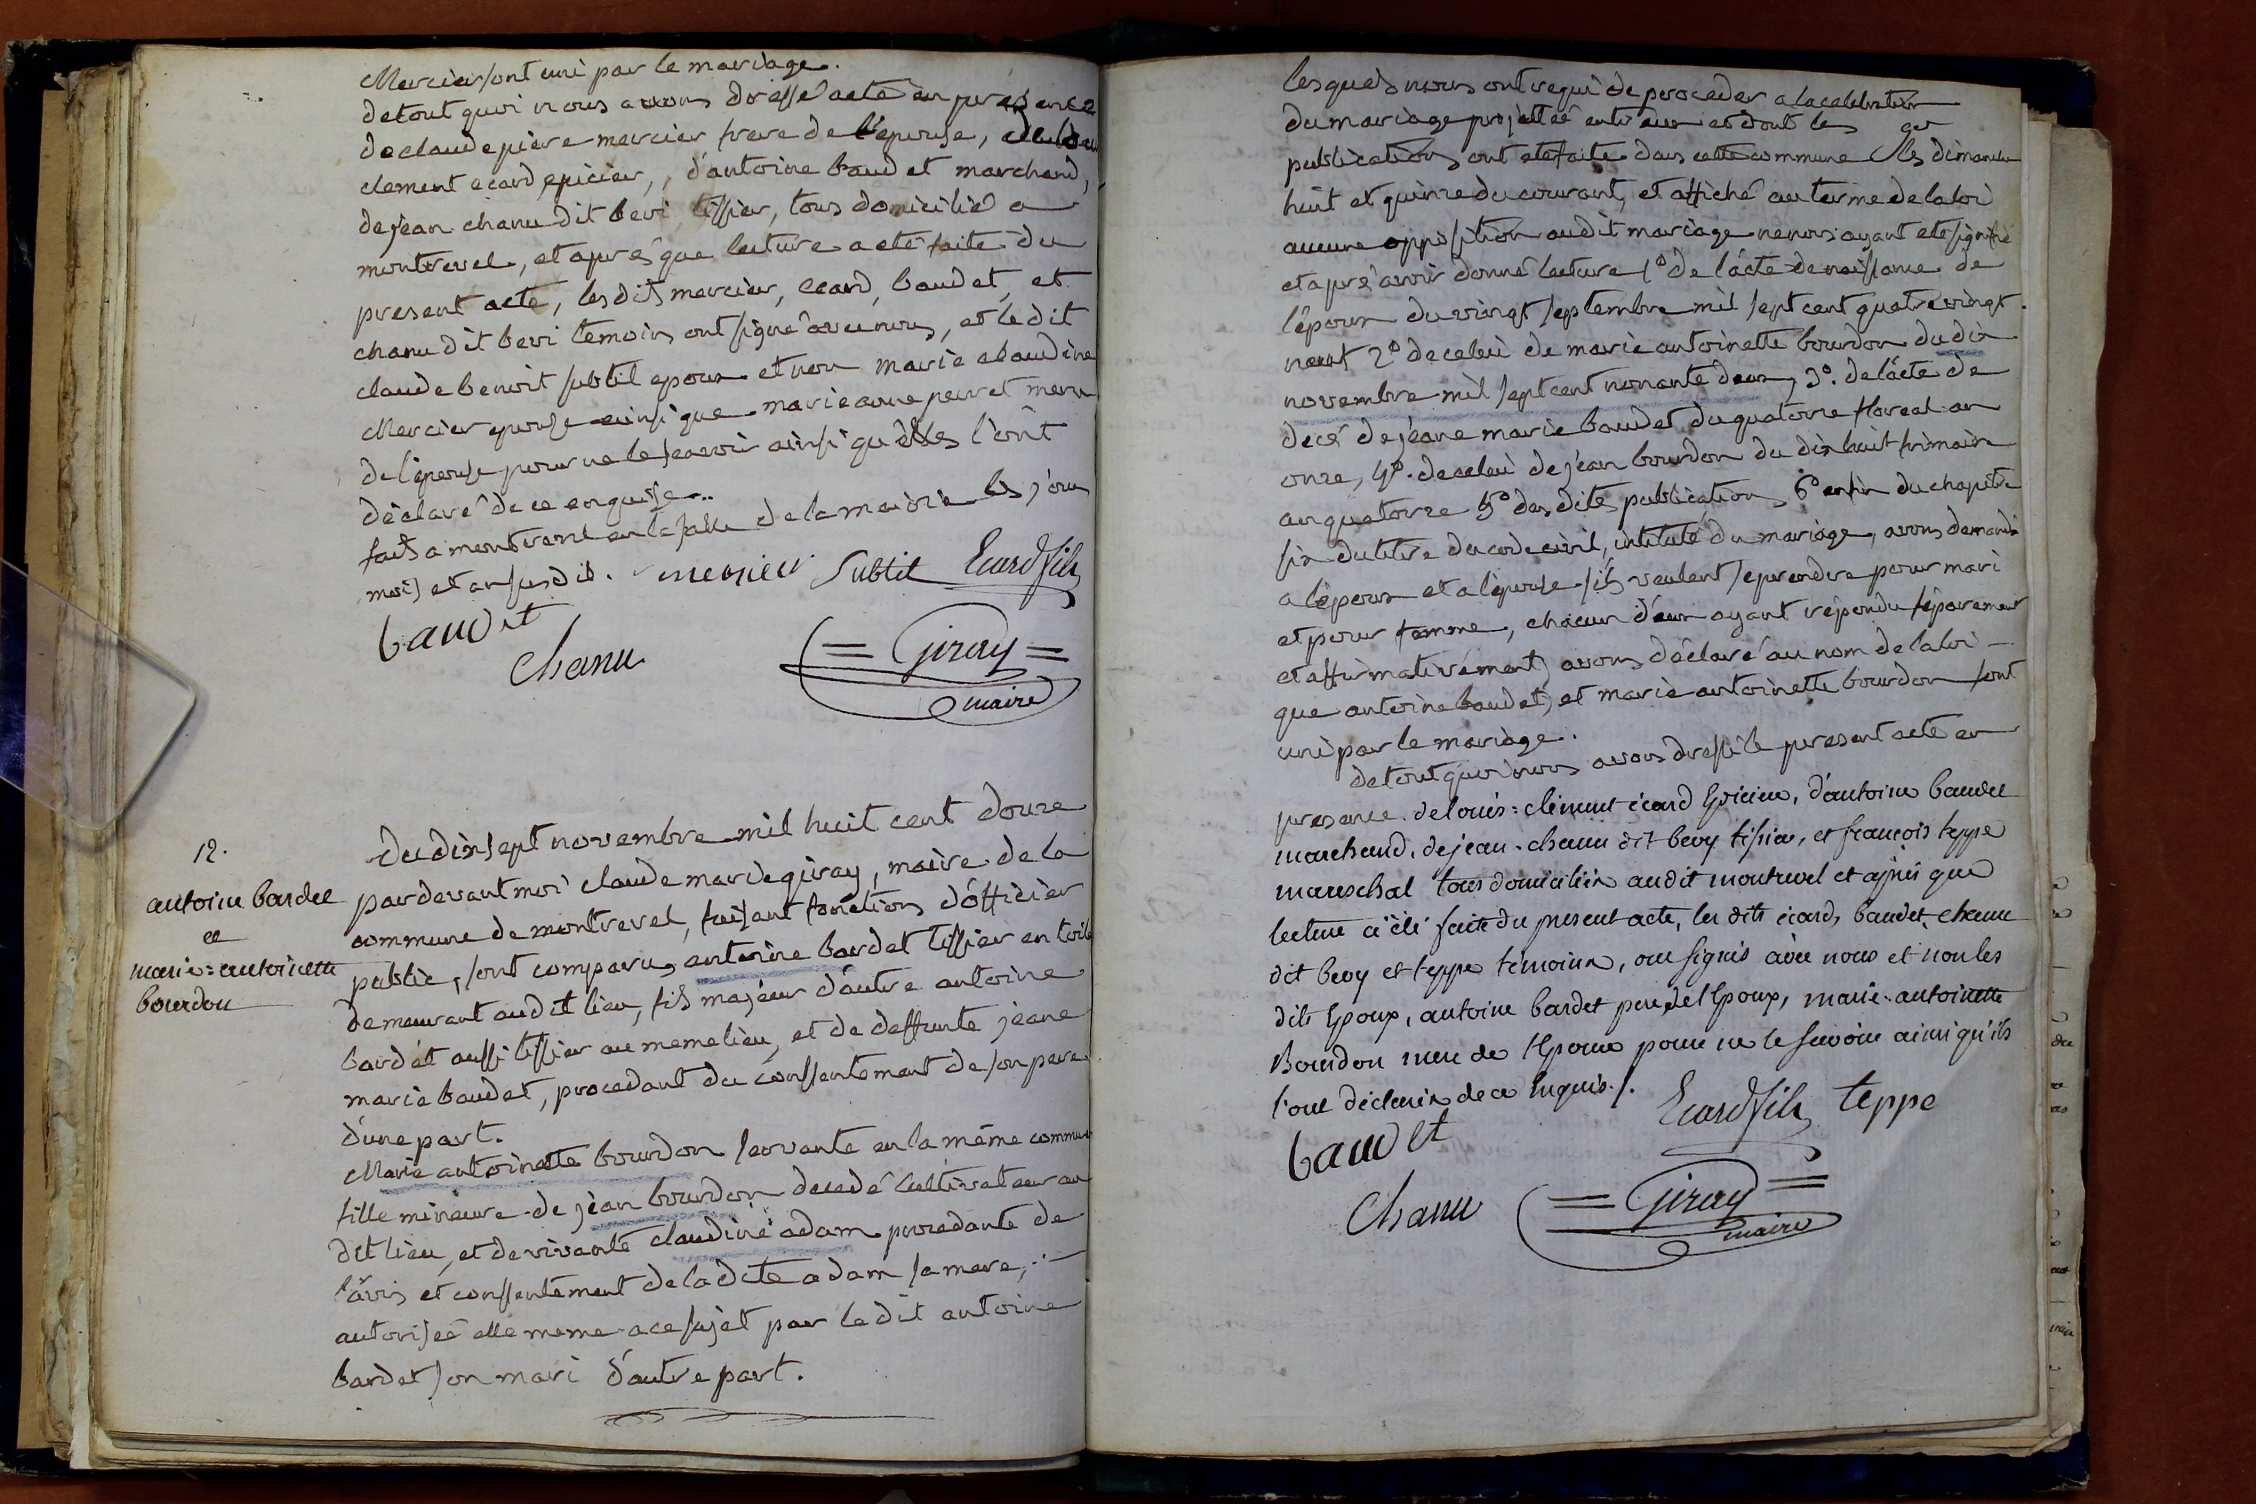 Mercier sont uni par le mariage.
de tout quoi nous avons dressé acte en presence
de claude piere mercier frere de l'epouse,
clement ecard epicier, d'antoine baudet marchand,
de jean chanu dit bevi tissier, tous domicilié a
montrevel, et aprés que lecture a eté faite du
present acte, les dits mercier, ecard, baudet, et
chanu dit bevi temoins ont signé avec nous, et le dit
claude benoit subtil epoux et non marie claudine
Mercier epouse ainsi que marie anne peuret mere
de l'epouse pour ne le scavoir ainsi qu'elles l'ont
déclaré de ce enquise..
fait a montrevel en la salle de la mairie les jour
mois et an susdit. mercier Subtil Ecard fils
baudet
Chanu
Giray
maire
12.
antoine bardet
et
marie=antoinette
bourdon
Du dixsept novembre mil huit cent douze
pardevant moi claude marie giray, maire de la
commune de montrevel, faisant fonctions d'officier
public, sont comparus antoine bardet tissier en toile
demeurant audit lieu, fils majeur d'autre antoine
bardet aussi tissier au meme lieu, et de deffunte jeane
marie baudet, procedant du consentement de son pere
d'une part.
Marie antoinette bourdon servante en la même commune
fille mineure de jean bourdon decedé cultivateur au
dit lieu, et de vivante claudine adam procedante de
l'avis et consentement de la dite adam sa mere,
autorisée elle meme a ce sujet par le dit antoine
bardet son mari d'autre part.
lesquels nous ont requi de proceder a la celebration
du mariage projettée entr'eux et dont les
publications ont eté faite dans cette commune les dimanche
huit et quinze du courant, et affiché au terme de la loi
aucune oppisition audit mariage ne nous ayant eté signifié
et apré avoir donné lecture 1º de l'acte de naissance de
l'époux du vingt septembre mil sept cent quatre vingt
neuf 2º de celui de marie antoinette bourdon du dix
novembre mil sept cent nonante deux, 3º. de l'acte de
decé de jéane marie baudet du quatorze floreal an
onze, 4º. de celui de jéan bourdon du dix huit frimaire
an quatorze 5º des dites publications 6º enfin du chapitre
six du titre du code civil, intitulé du mariage, avons demandé
a l'epoux et a l'epouse s'ils veulent se prendre pour mari
et pour femme, chacun d'eux ayant répondu séparement
et affirmativement, avons déclaré au nom de la loi
que antoine baudet, et marie antoinette bourdon sont
uni par le mariage.
de tout quoi nous avons dressé le present acte en
presence de louis=clément écard Epicier, d'antoine baudet
marchand, de jean chanu dit bevy tissier, et françois teppe
mareschal tous domiciliés audit montrevel et après que
lecture a été faite du present acte, les dits écard, baudet, chanu
dit bevy et teppe témoins, ont signés avec nous et non les
dits Epoux, antoine bardet pere de l'Epoux, marie-antoinette
Bourdon mere de l'Epouse pour ne le savoir ainsi qu'ils
l'ont déclarés de ce Enquis./.
Ecard fils teppe
baudet
Chanu
Giray
maire